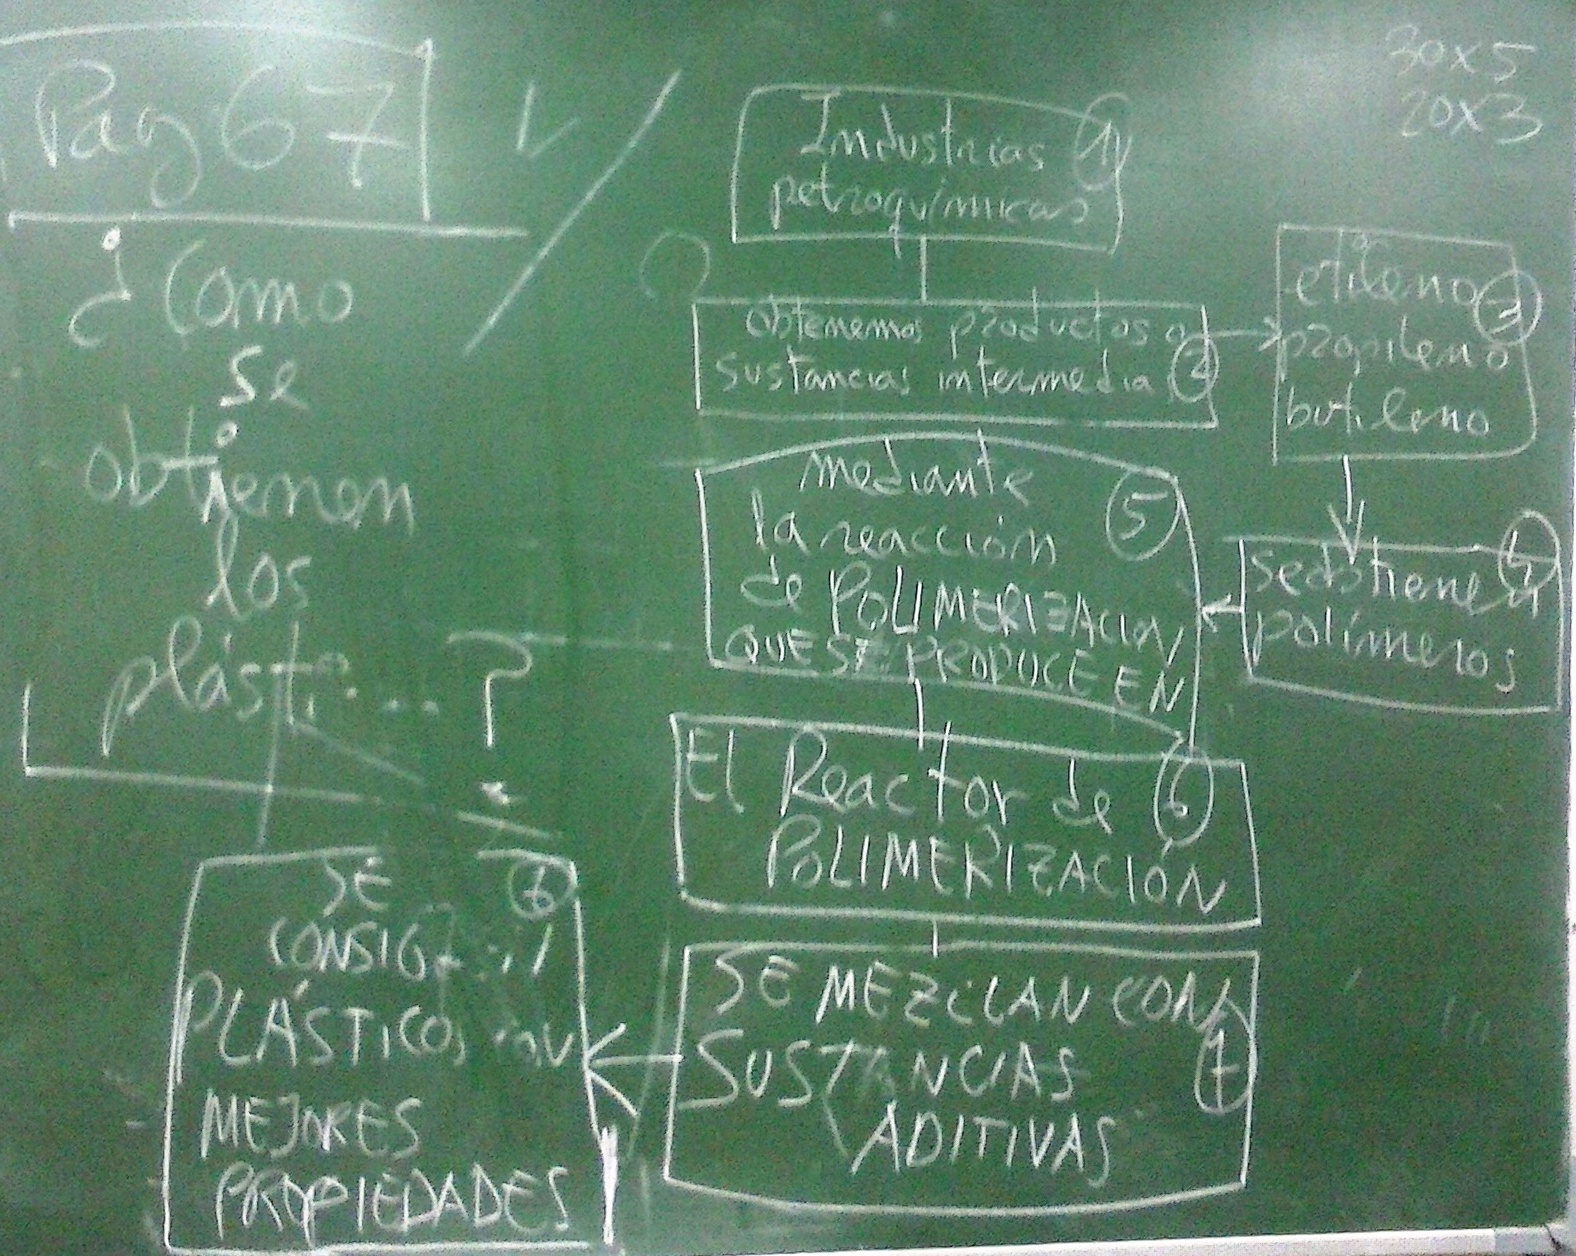 Pag 67
¿Como
se
obtienen
los
plásti... ?
30x5
20x3
Industrias 1
petroquímicas
obtenemos productos o
sustancias intermedia 2
etileno 3
propileno
butileno
se obtienen 4
polímeros
mediante
la reacción 5
de POLIMERIZACION
QUE SE PRODUCE EN
El Reactor de 6
POLIMERIZACIÓN
SE MEZCLAN CON
SUSTANCIAS 7
ADITIVAS
SE
PLÁSTICOS
MEJORES
PROPIEDADES